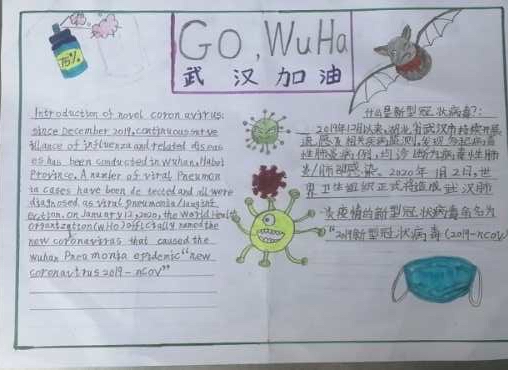 Go, WuHa
武汉加油
75%
Introduction of novel coronavirus:
since December 2019, continuous surve
illance of influenza and related diseas
es has been conducted in wuhan, Hubei
Province, A number of viral Pneumon
ia cases have been detected and all were
diagnosed as viral pneumonia/
on January 12, 2020, the World Health
organization (WHO) officially named the
new coronavirus that caused the
wuhan Pneumonia epidemic "new
coronavirus 2019-nCoV"
什么是新型冠状病毒?:
2019年12月以来,湖北省武汉市持续开展
流感及相关疾病监测,发现多起病毒
性肺炎病例,均诊断为病毒性肺
炎/肺部感染。2020年1月2日,世
界卫生组织正式将造成武汉肺
炎疫情的新型冠状病毒命名为
"2019新型冠状病毒(2019-nCoV